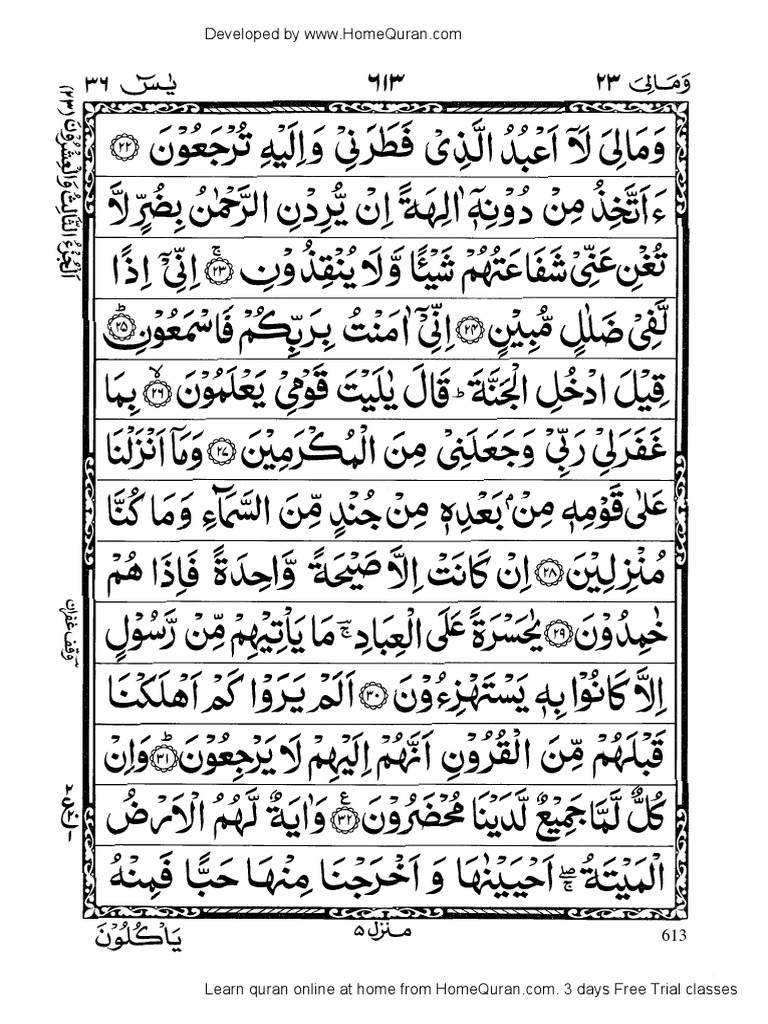 Developed by www.HomeQuran.com
وَمَالِىَ ٢٣ ٦١٣ يٰسٓ ٣٦
اَلْجُزْءُ الثَّالِثُ وَالْعِشْرُوْنَ (٢٣)
وَمَالِىَ لَاۤ اَعْبُدُ الَّذِىْ فَطَرَنِىْ وَاِلَيْهِ تُرْجَعُوْنَ ٢٢
ءَاَتَّخِذُ مِنْ دُوْنِهٖۤ اٰلِهَةً اِنْ يُّرِدْنِ الرَّحْمٰنُ بِضُرٍّ لَّا
تُغْنِ عَنِّىْ شَفَاعَتُهُمْ شَيْـًٔا وَّلَا يُنْقِذُوْنِ ۚ ٢٣ اِنِّىْۤ اِذًا
لَّفِىْ ضَلٰلٍ مُّبِيْنٍ ٢٤ اِنِّىْۤ اٰمَنْتُ بِرَبِّكُمْ فَاسْمَعُوْنِ ؕ ٢٥
قِيْلَ ادْخُلِ الْجَنَّةَ ؕ قَالَ يٰلَيْتَ قَوْمِىْ يَعْلَمُوْنَ ۙ ٢٦ بِمَا
غَفَرَلِىْ رَبِّىْ وَجَعَلَنِىْ مِنَ الْمُكْرَمِيْنَ ٢٧ وَمَاۤ اَنْزَلْنَا
عَلٰى قَوْمِهٖ مِنْۢ بَعْدِهٖ مِنْ جُنْدٍ مِّنَ السَّمَآءِ وَمَا كُنَّا
مُنْزِلِيْنَ ٢٨ اِنْ كَانَتْ اِلَّا صَيْحَةً وَّاحِدَةً فَاِذَا هُمْ
خٰمِدُوْنَ ٢٩ يٰحَسْرَةً عَلَى الْعِبَادِ ۚ مَا يَاْتِيْهِمْ مِّنْ رَّسُوْلٍ
وقف غفران
اِلَّا كَانُوْا بِهٖ يَسْتَهْزِءُوْنَ ٣٠ اَلَمْ يَرَوْا كَمْ اَهْلَكْنَا
قَبْلَهُمْ مِّنَ الْقُرُوْنِ اَنَّهُمْ اِلَيْهِمْ لَا يَرْجِعُوْنَ ؕ ٣١ وَاِنْ
كُلٌّ لَّمَّا جَمِيْعٌ لَّدَيْنَا مُحْضَرُوْنَ ٣٢ وَاٰيَةٌ لَّهُمُ الْاَرْضُ
الْمَيْتَةُ ۖۚ اَحْيَيْنٰهَا وَ اَخْرَجْنَا مِنْهَا حَبًّا فَمِنْهُ
613 منزل ٥ يَاْكُلُوْنَ
Learn quran online at home from HomeQuran.com. 3 days Free Trial classes